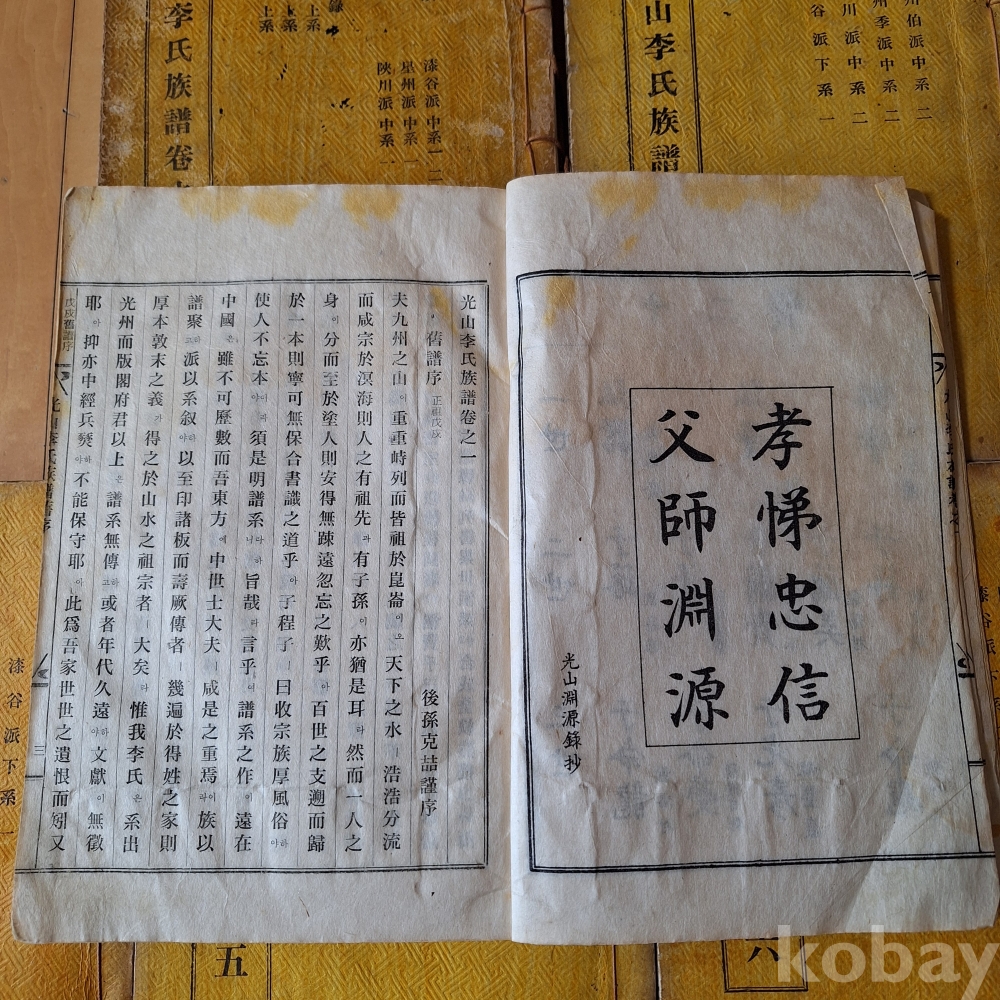 李氏族譜卷
錄
上系
上系
上系
漆谷派中系一二
星州派中系一
陜川派中系一
山李氏族譜
川伯派中系二
州季派中系二
川派中系二
谷派下系一
孝悌忠信
父師淵源
光山淵源錄抄
光山李氏族譜卷之一
舊譜序 正祖戊戌 後孫克喆謹序
夫九州之山이重重峙列而皆祖於崑崙이오天下之水ㅣ浩浩分流
而咸宗於溟海則人之有祖先라有子孫이亦猶是耳라然而一人之
身이分而至於塗人則安得無踈遠忽忘之歎乎아百世之支遡而歸
於一本則寧可無保合書識之道乎아子程子ㅣ曰收宗族厚風俗하야
使人不忘本이라야須是明譜系라니라旨哉라言乎이여譜系之作이遠在
中國은雖不可歷數而吾東方에中世士大夫ㅣ咸是之重焉이라族以
譜聚하고派以系叙하야以至印諸板而壽厥傳者ㅣ幾遍於得姓之家則
厚本敦末之義가得之於山水之祖宗者ㅣ大矣라惟我李氏은系出
光州而版閣府君以上은譜系無傳하고或者年代久遠하야文獻이無徵
耶아抑亦中經兵燹하야不能保守耶아此爲吾家世世之遺恨而矧又
戊戌舊譜序
光山李氏族譜序
三
漆谷派下系一
漆谷派
五
六
kobay